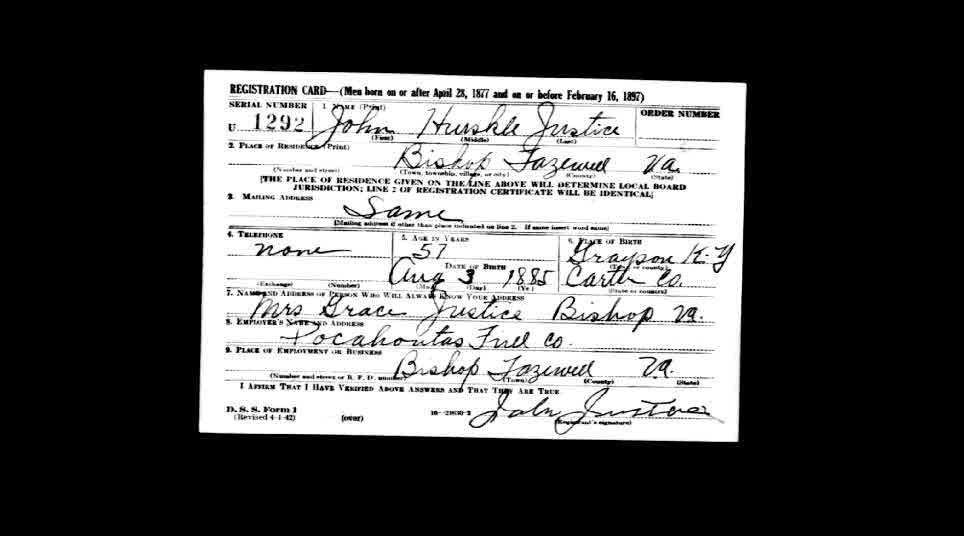 REGISTRATION CARD—(Men born on or after April 28, 1877 and on or before February 16, 1897)
SERIAL NUMBER 1. NAME (Print) ORDER NUMBER
U 1292 John Hurshle Justice
(First) (Middle) (Last)
2. PLACE OF RESIDENCE (Print)
Bishop Tazewell Va.
(Number and street) (Town, township, village, or city) (County) (State)
[THE PLACE OF RESIDENCE GIVEN ON THE LINE ABOVE WILL DETERMINE LOCAL BOARD
JURISDICTION; LINE 2 OF REGISTRATION CERTIFICATE WILL BE IDENTICAL]
3. MAILING ADDRESS
Same
[Mailing address if other than place indicated on line 2. If same insert word same]
4. TELEPHONE 5. AGE IN YEARS 6. PLACE OF BIRTH
none 57 Grayson K-Y
DATE OF BIRTH (Town or county)
Aug 3 1885 Carter Co.
(Exchange) (Number) (Mo.) (Day) (Yr.) (State or country)
7. NAME AND ADDRESS OF PERSON WHO WILL ALWAYS KNOW YOUR ADDRESS
Mrs Grace Justice Bishop Va.
8. EMPLOYER'S NAME AND ADDRESS
Pocahontas Fuel Co.
9. PLACE OF EMPLOYMENT OR BUSINESS
Bishop Tazewell Va.
(Number and street or R. F. D. number) (Town) (County) (State)
I AFFIRM THAT I HAVE VERIFIED ABOVE ANSWERS AND THAT THEY ARE TRUE.
D. S. S. Form 1 John Justice
(Revised 4-1-42) (over) 16—21630-2 (Registrant's signature)